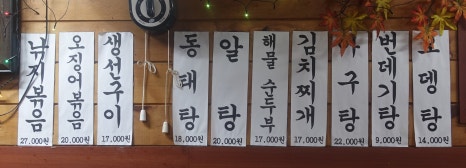 낙지볶음
27,000원
오징어볶음
20,000원
생선구이
17,000원
동태탕
18,000원
알탕
20,000원
해물순두부
17,000원
김치찌개
17,000원
구탕
22,000원
번데기탕
9,000원
뎅탕
14,000원